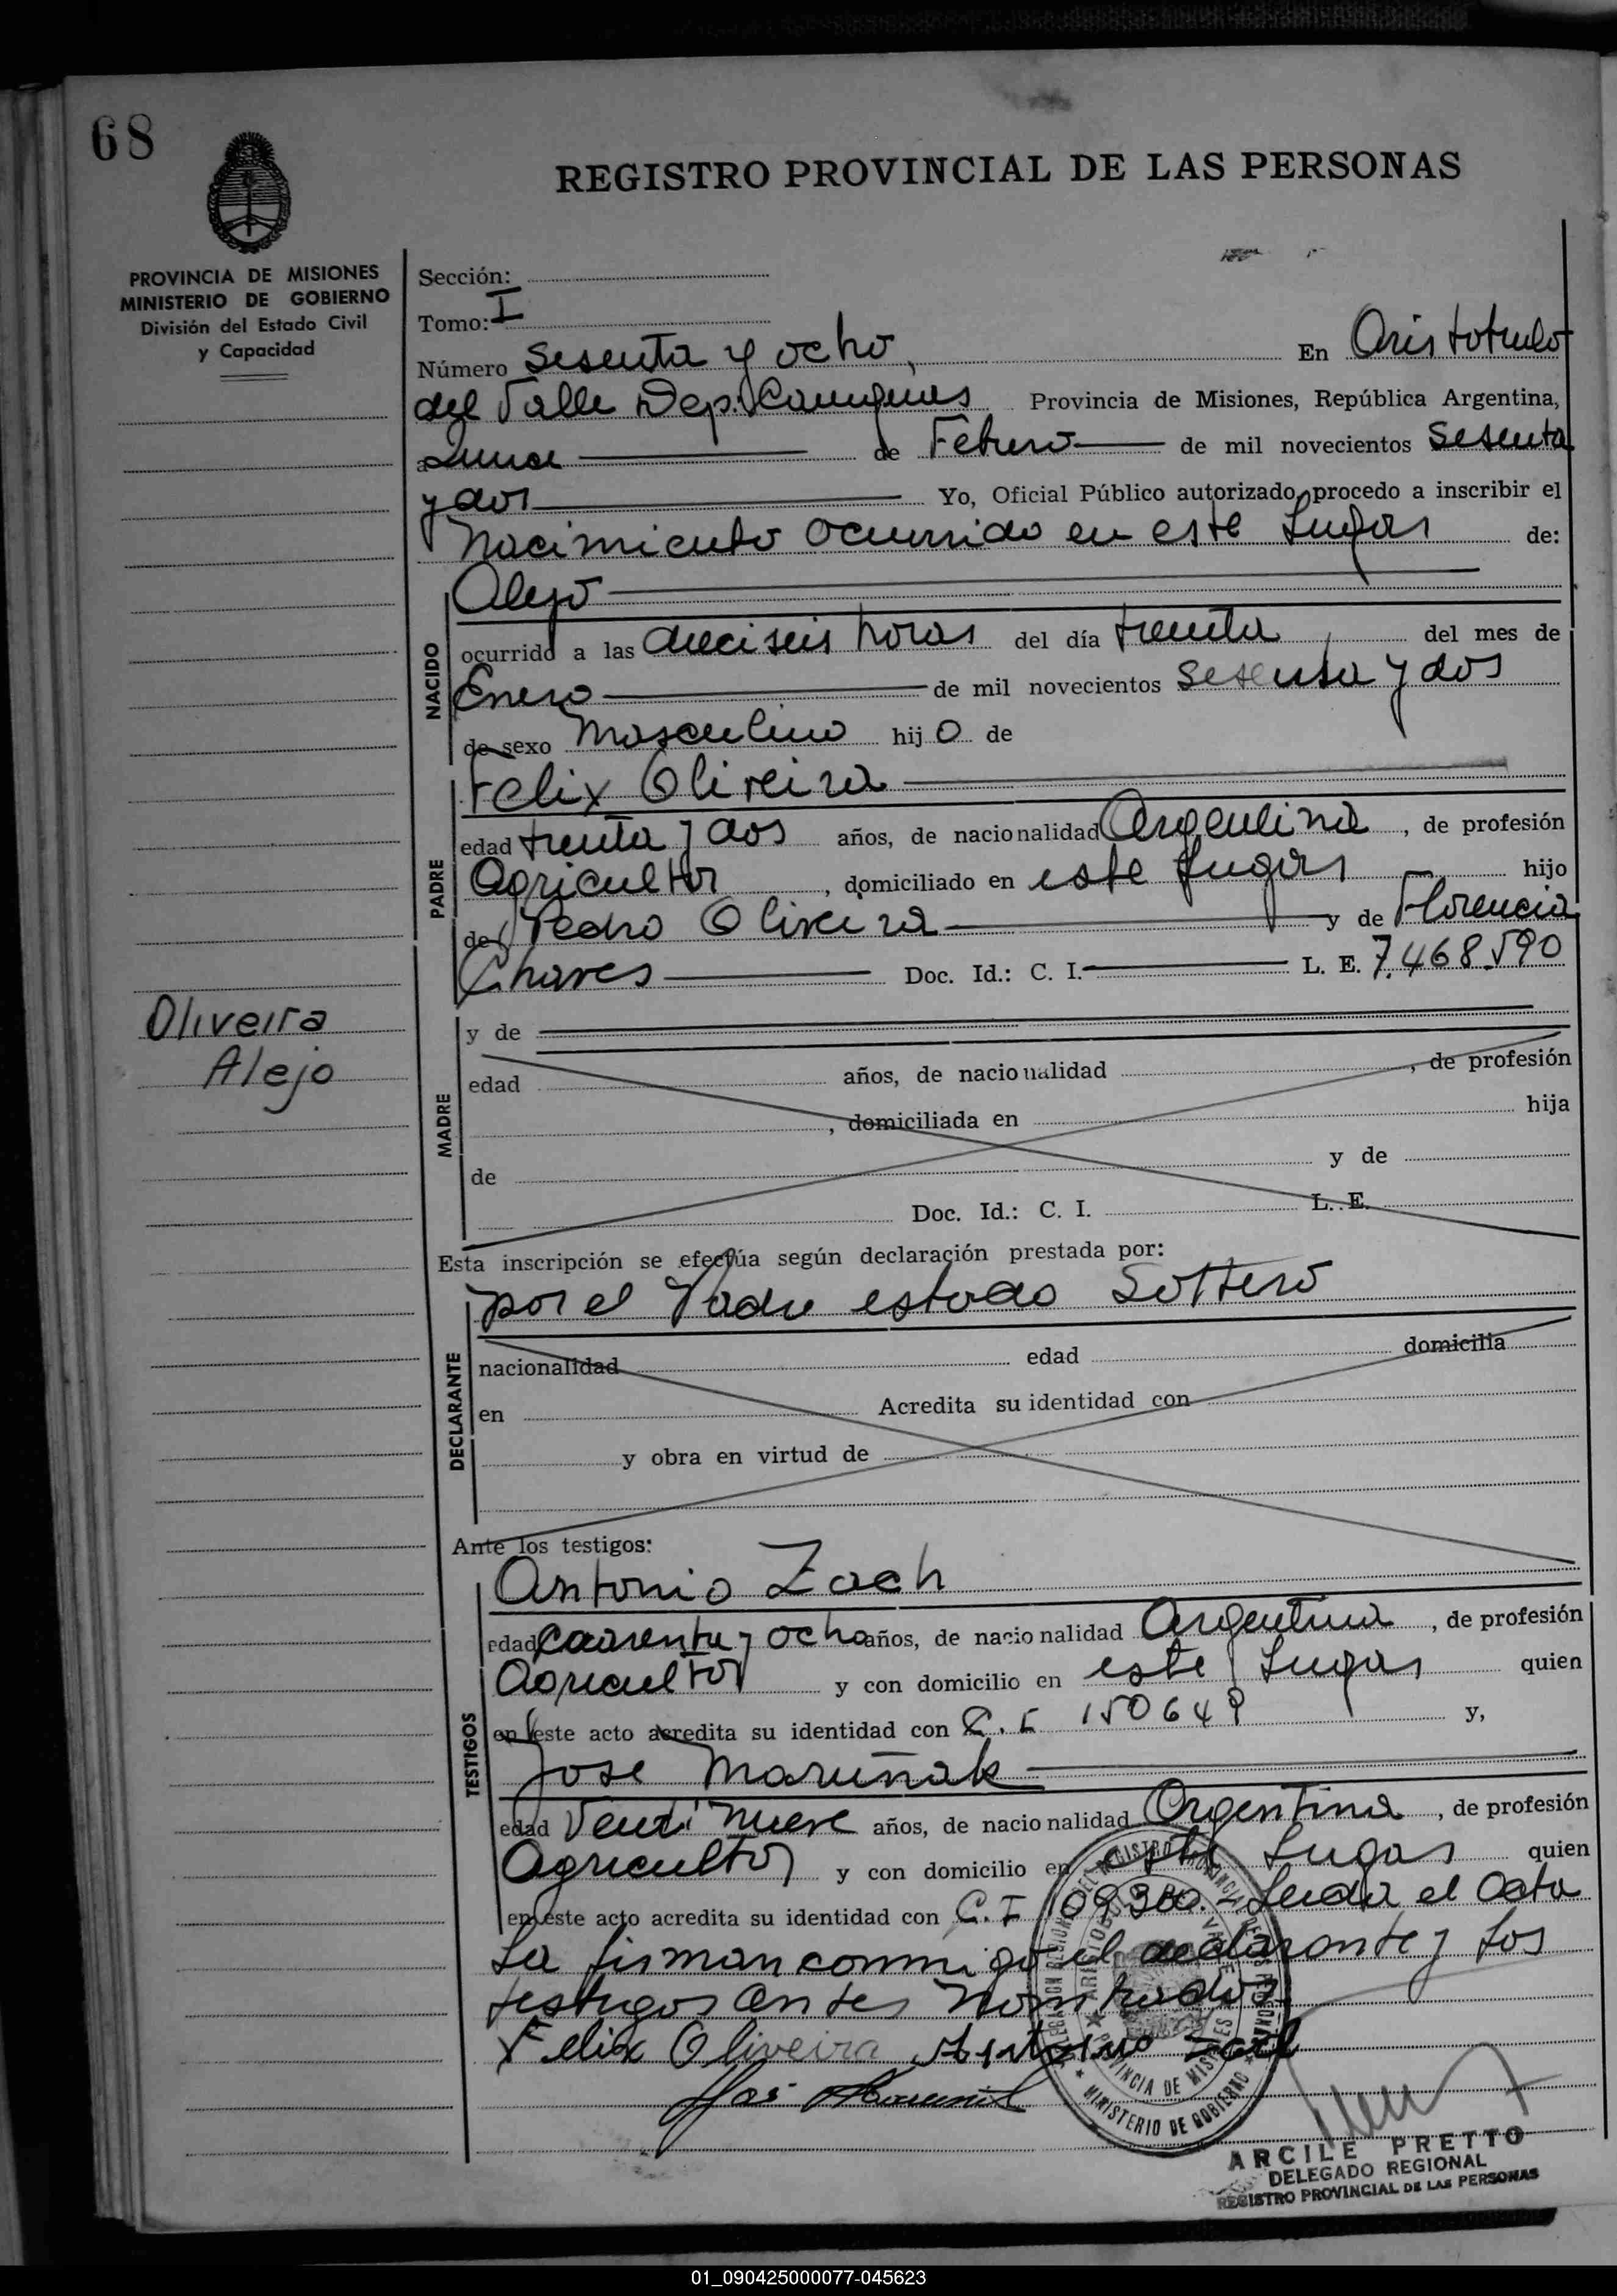 68
REGISTRO PROVINCIAL DE LAS PERSONAS
PROVINCIA DE MISIONES
MINISTERIO DE GOBIERNO
División del Estado Civil
y Capacidad
Sección:
Tomo: I
Número Sesenta y ocho, En Aristobulo
del Valle Dep. Provincia de Misiones, República Argentina,
a de Febrero de mil novecientos Sesenta
y dos Yo, Oficial Público autorizado, procedo a inscribir el
Nacimiento ocurrido en este Lugar de:
NACIDO
Alejo
ocurrido a las dieciseis horas del día treinta del mes de
Enero de mil novecientos Sesenta y dos
de sexo Masculino hijo de
PADRE
Felix Oliveira
edad treinta y dos años, de nacionalidad Argentina, de profesión
Agricultor, domiciliado en este Lugar hijo
de Pedro Oliveira y de Florencia
Chaves Doc. Id.: C. I. L. E. 7.468.590
Oliveira
Alejo
MADRE
y de
edad años, de nacionalidad , de profesión
, domiciliada en hija
de y de
Doc. Id.: C. I. L. E.
Esta inscripción se efectúa según declaración prestada por:
DECLARANTE
por el Padre estado Soltero
nacionalidad edad domicilia
en Acredita su identidad con
y obra en virtud de
Ante los testigos:
TESTIGOS
Antonio Zach
edad Cuarenta y ocho años, de nacionalidad Argentina, de profesión
Agricultor y con domicilio en este Lugar quien
en este acto acredita su identidad con C. I 150649 y,
Jose Maruñak
edad Venti nueve años, de nacionalidad Argentina, de profesión
Agricultor y con domicilio en este Lugar quien
en este acto acredita su identidad con C. I 109300.- Leida el Acta
La firman conmigo el declarante y Los
testigos antes Nombrados
Felix Oliveira Antonio Zach
MINISTERIO DE GOBIERNO
PROVINCIA DE MISIONES
ARCILE PRETTO
DELEGADO REGIONAL
REGISTRO PROVINCIAL DE LAS PERSONAS
01_090425000077-045623